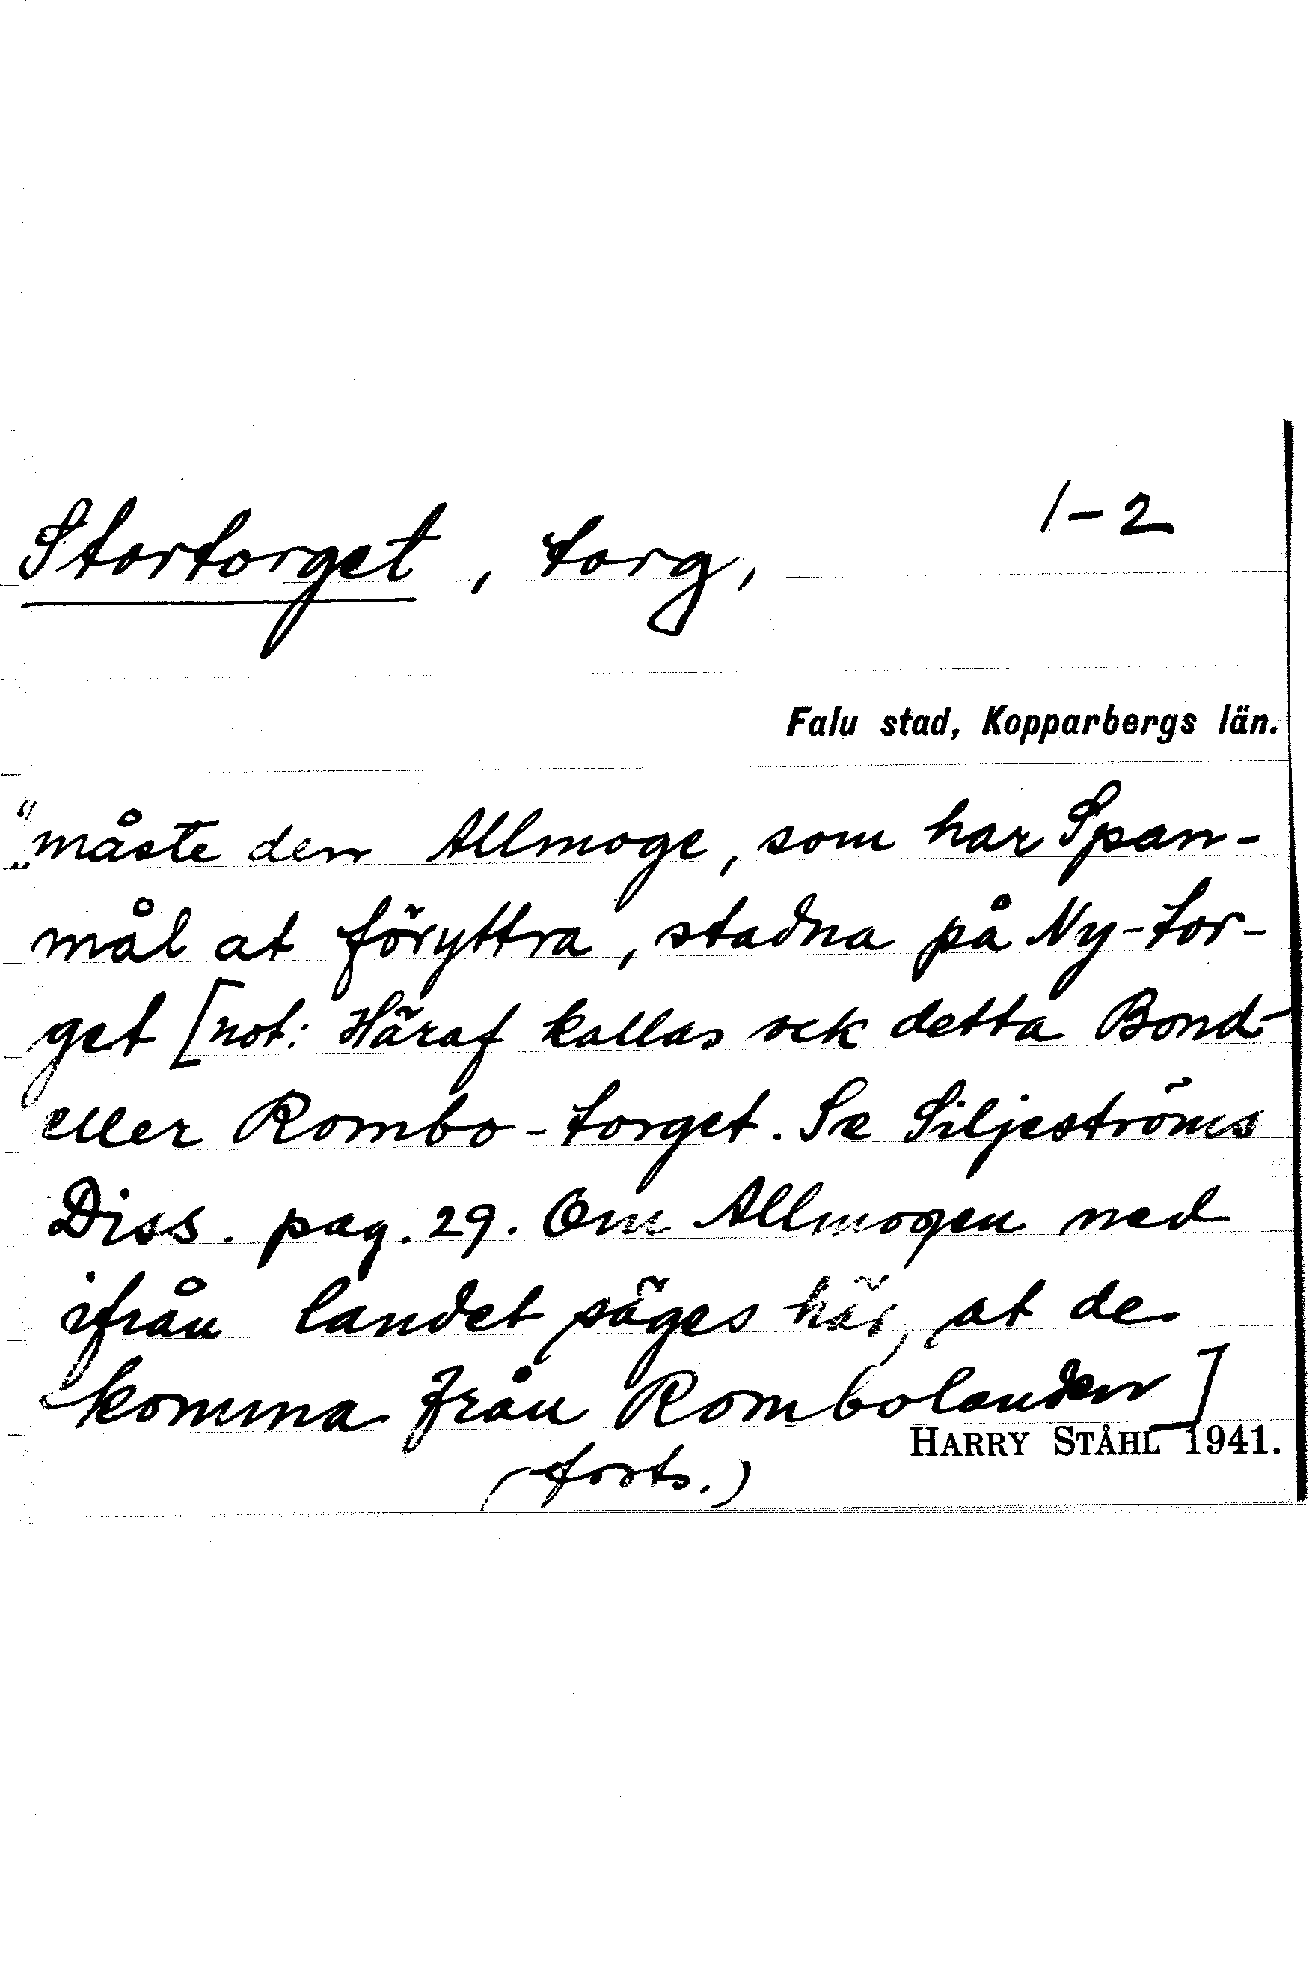 1-2
Stortorget, torg,
Falu stad, Kopparbergs län.
"måste den Allmoge, som har Span-
mål at föryttra, stadna på Ny-tor-
get [not: Häraf kallas ock detta Bond-
eller Rombo-torget. Se Siljeströms
Diss. pag. 29. Om Allmogen ned
ifrån landet säges här, at de
komma från Rombolanden]
HARRY STÅHL 1941.
(forts.)